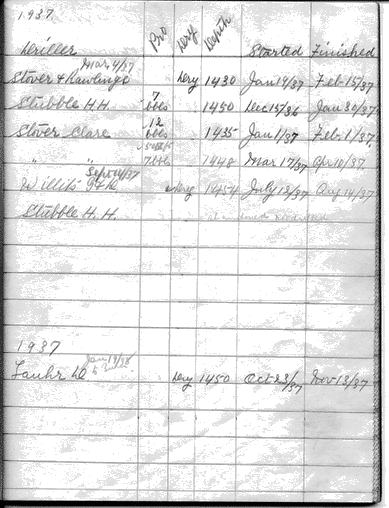 1937
Driller Pro Dry Depth Started Finished
Mar 4/37
Stover & Rawlings Dry 1430 Jan 19/37 Feb 15/37
7
Stubble H.H. bbls 1450 Dec 15/36 Jan 30/37
12
Stover Clare bbls 1435 Jan 1/37 Feb 1/37
" " 7 bbls 1448 Mar 17/37 Apr 10/37
Sept 14/37
Willits Dry 1454 July 13/37 Aug 14/37
Stubble H.H.
1937
Jan 19/38
Fauhr Dry 1450 Oct 23/37 Nov 13/37